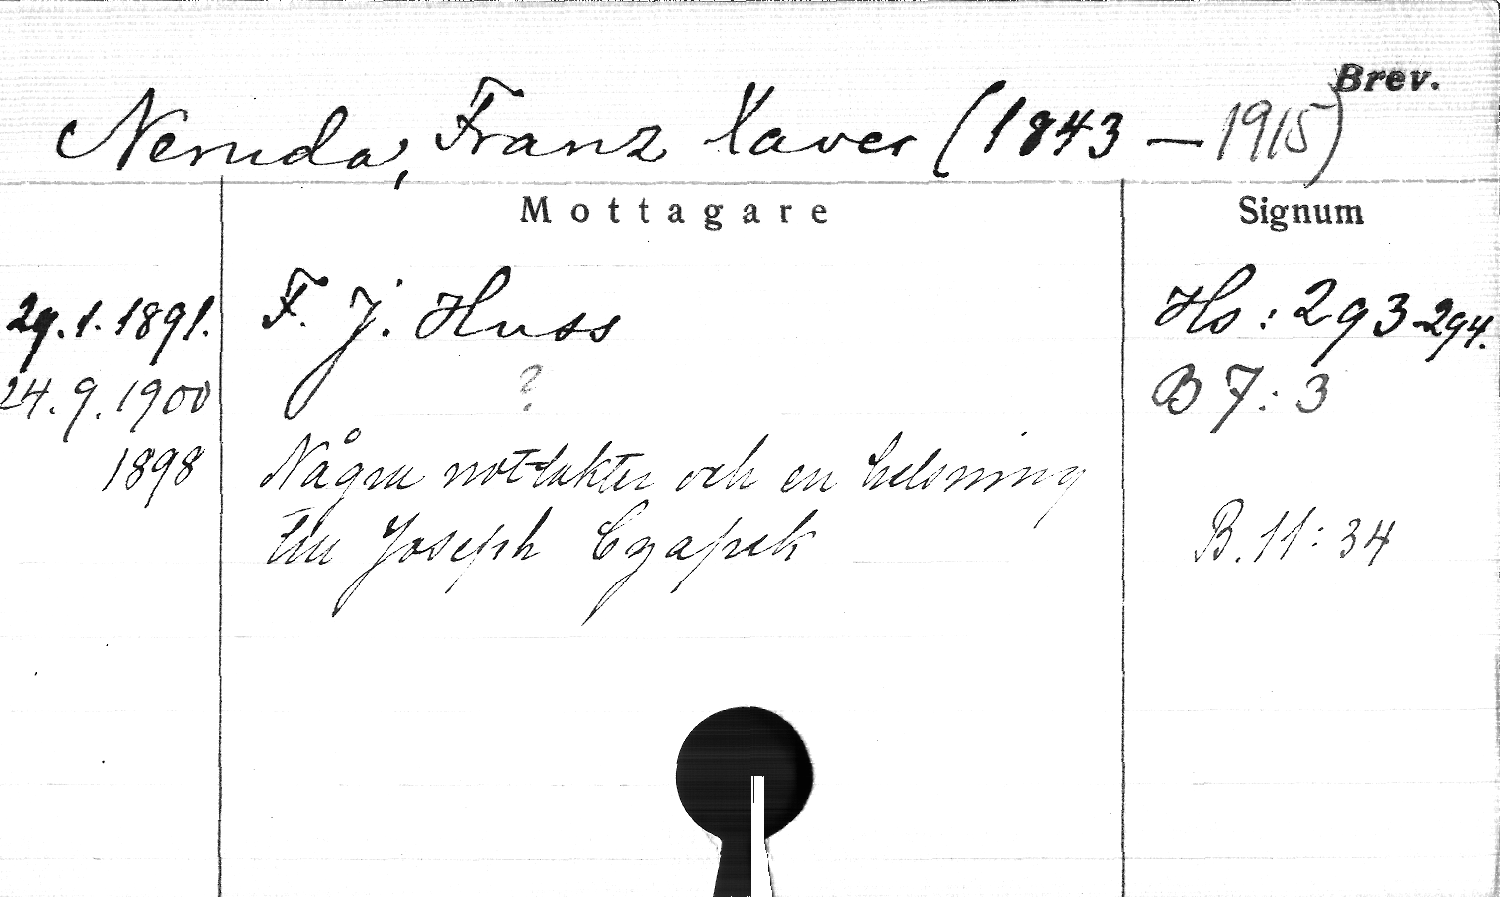 Brev.
Neruda, Franz Xaver (1843 — 1915)
Mottagare Signum
29.1.1891. F. J. Huss Hs: 293-294.
24.9.1900 ? B 7: 3
1898 Några nottakter och en helsning
till Joseph Czapek B. 11: 34